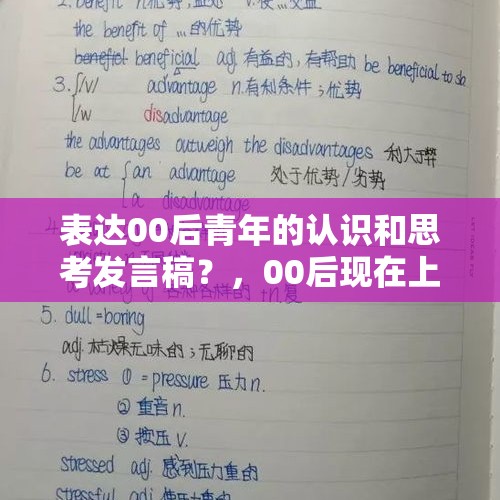 2. benefit n.优势,益处 v.使…受益
the benefit of …的优势
beneficial adj 有益的,有帮助 be beneficial to sb
3. /v/ advantage n.有利条件;优势
/w disadvantage
the advantages outweigh the disadvantages 利大于弊
be at an advantage 处于优势/劣势
a disadvantage
表达00后青年的认识和思
考发言稿?,00后现在上
5. dull =boring
adj.枯燥无味的;无聊的
6. stress ① =pressure 压力n.
② 重音n.
③ 按压 v.
stressed adj. 感到压力重的
stressful adj